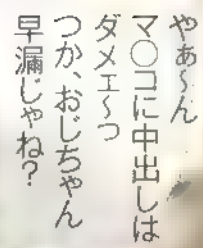 やぁ～ん
マ〇コに中出しは
ダメェ～っ
つか、おじちゃん
早漏じゃね？